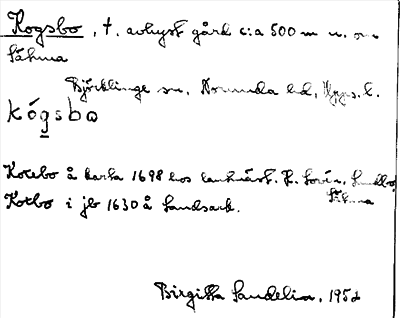 Kogsbo, t. avhyst gård c:a 500 m n. om
Såhma
Björklinge sn, Norunda hd, Upps. l.
kógsbo
Kotebo å karta 1698 hos lantmät. F. Lovén, Lundbo,
Kotbo i jb 1630 å Landsark.
Birgitta Sandelin, 1952